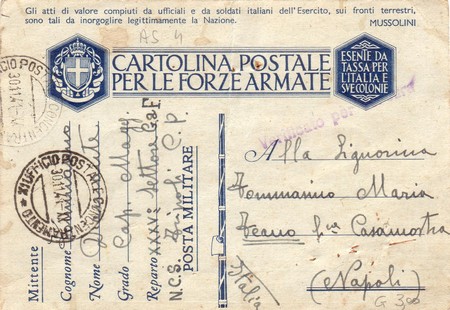 Gli atti di valore compiuti da ufficiali e da soldati italiani dell'Esercito, sui fronti terrestri,
sono tali da inorgoglire legittimamente la Nazione.
MUSSOLINI
AS 4
CARTOLINA POSTALE
PER LE FORZE ARMATE
ESENTE DA
TASSA PER
L'ITALIA E
SVE COLONIE
Verificato per
Mittente
Cognome
Nome
Grado Cap. Magg
Reparto XXXV° Settore G.a.F.
N.C.S. Tripoli C.P.
POSTA MILITARE
Alla Signorina
Tommasino Maria
Teano
(Napoli)
Italia
G 3,00